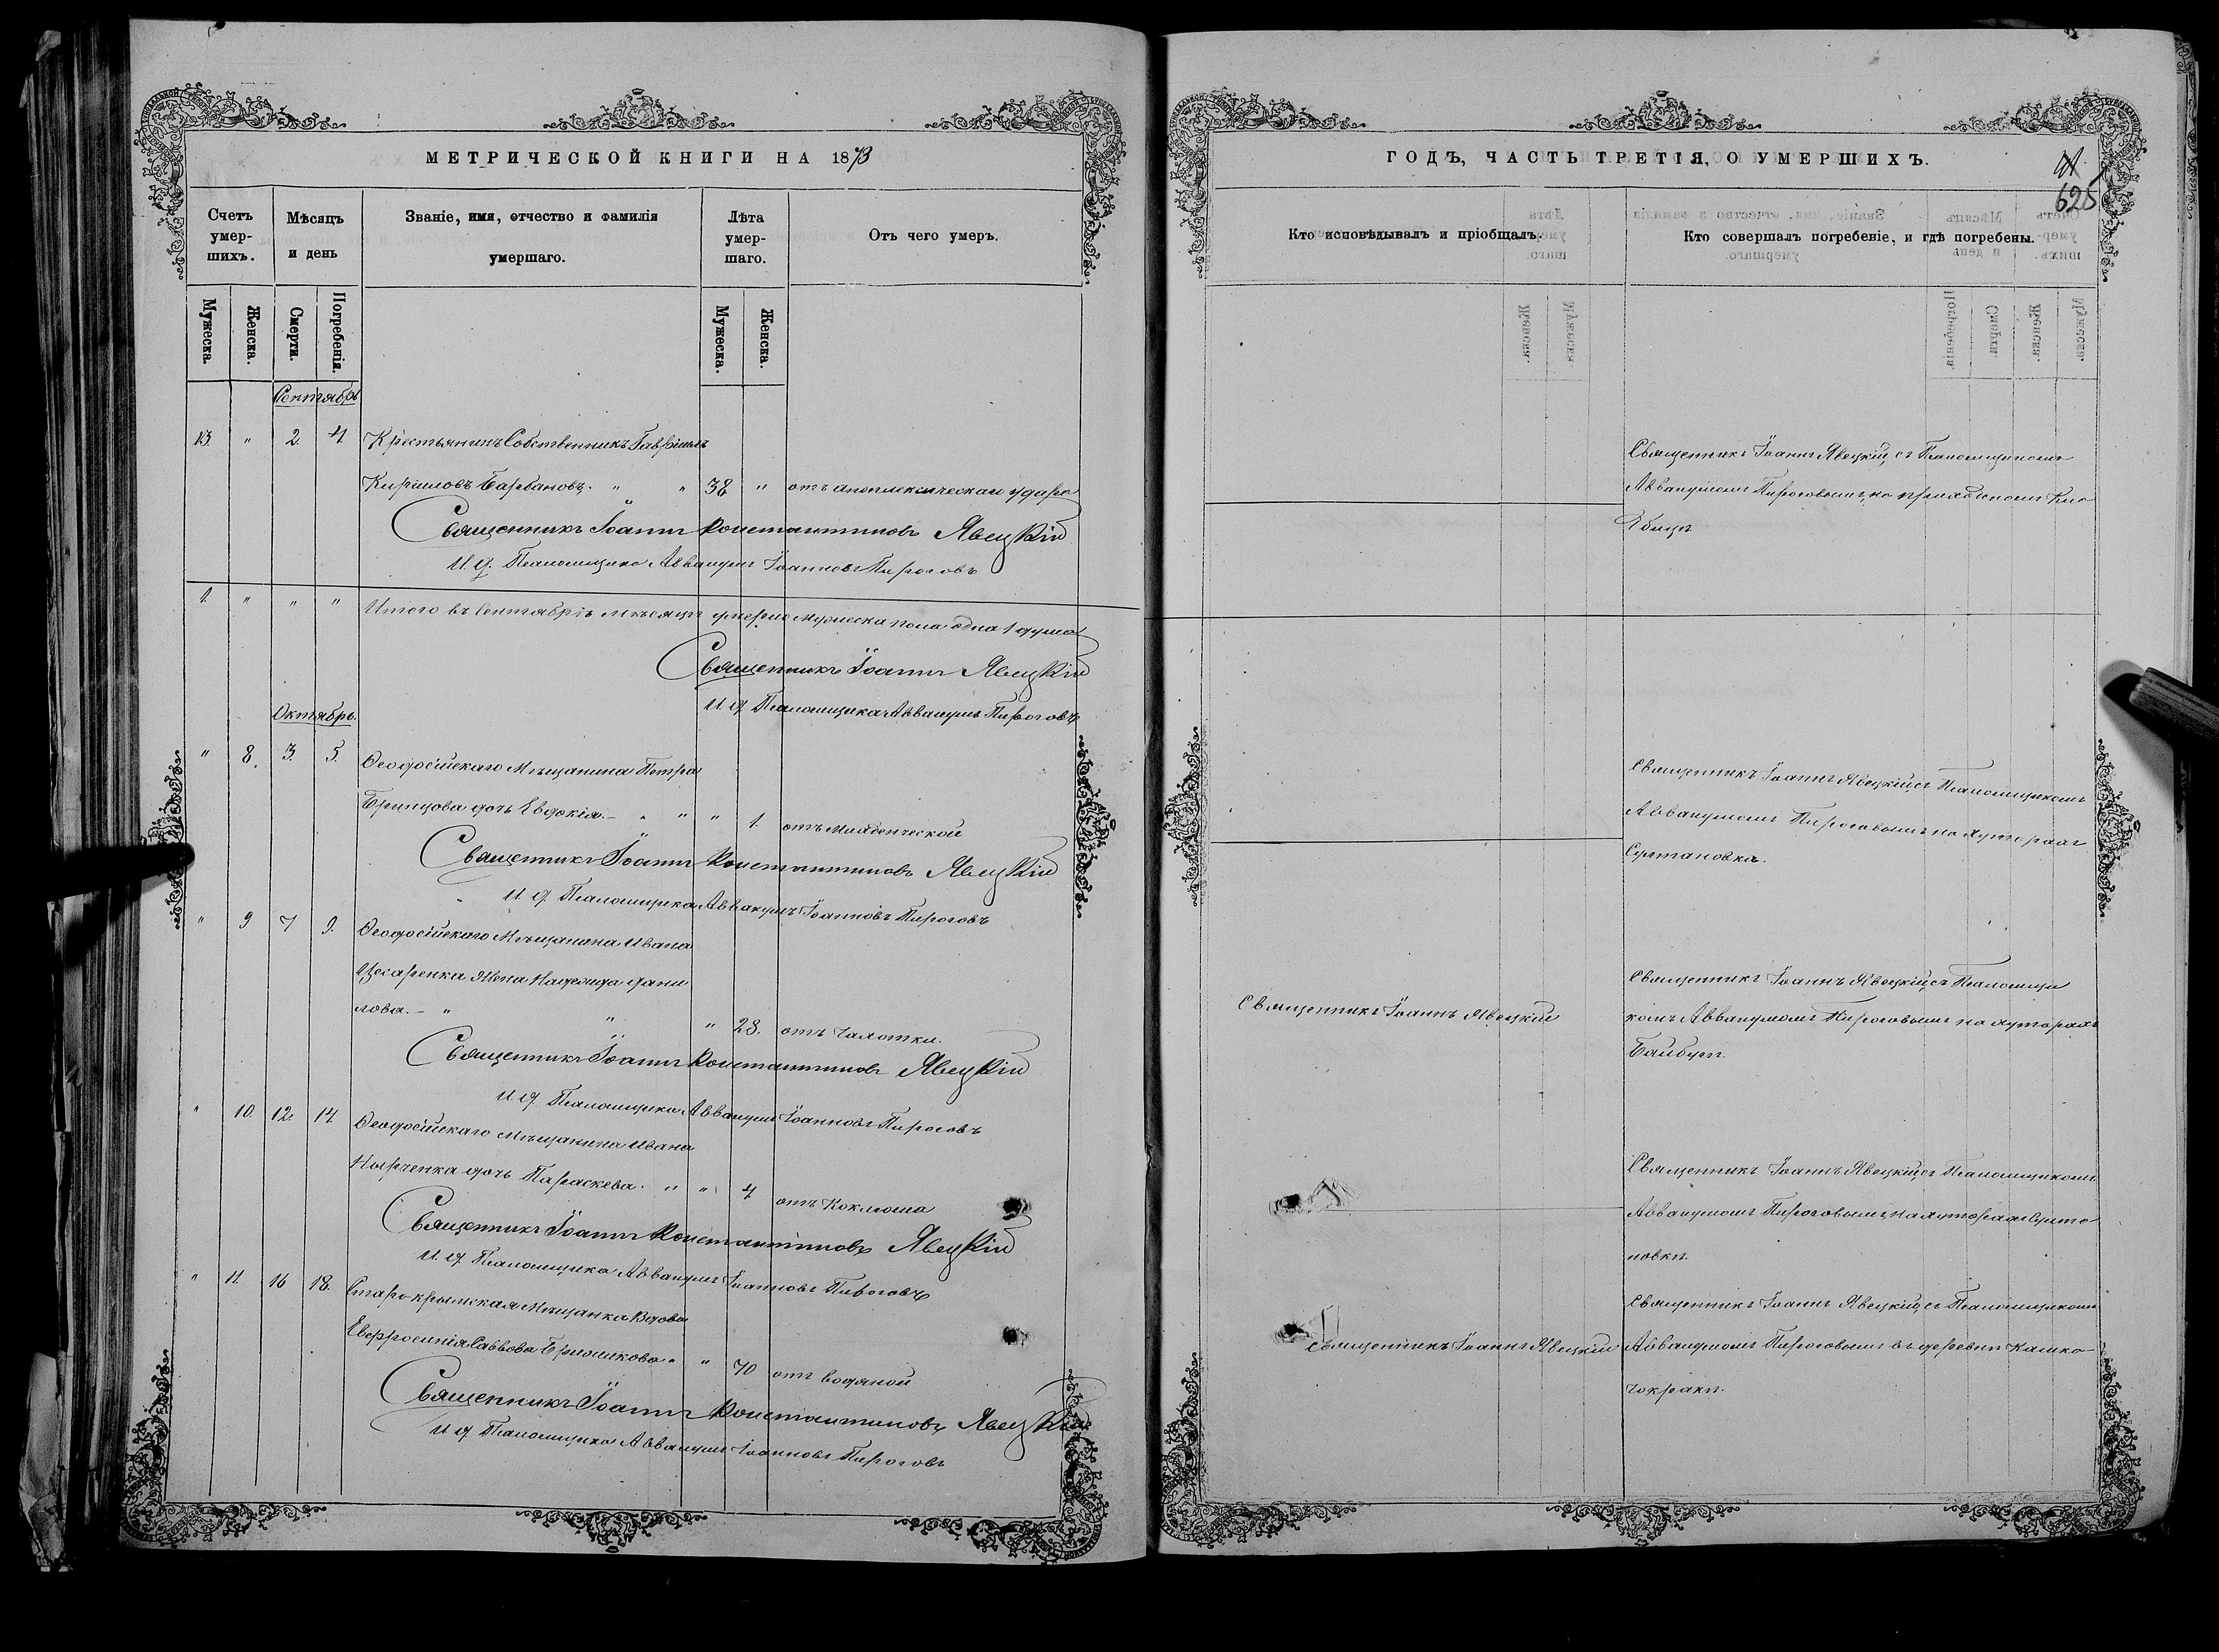 МЕТРИЧЕСКОЙ КНИГИ НА 1873
Счетъ умер-шихъ.
Мѣсяцъ и день
Званіе, имя, отчество и фамилія умершаго.
Лѣта умер-шаго.
Отъ чего умеръ.
Мужеска.
Женска.
Смерти.
Погребенія.
Мужеска.
Женска.
Сентябрь
13. " 2. 4 Крестьянинъ Собственникъ Гавріилъ
Кириловъ Барбановъ. " " 38 " отъ апоплексическаго удара
Священникъ Іоаннъ Константиновъ Явецкій
И. д. Псаломщика Аввакумъ Іоанновъ Пироговъ
1. " " " Итого въ Сентябрѣ мѣсяцѣ умерло мужеска пола одна 1 душа
Священникъ Іоаннъ Явецкій
И. д. Псаломщика Аввакумъ Пироговъ
Октябрь.
" 8. 3. 5. Ѳеодосійскаго Мѣщанина Петра
дочь Евдокія. " " " 1. отъ младенческой
Священникъ Іоаннъ Константиновъ Явецкій
И. д. Псаломщика Аввакумъ Іоанновъ Пироговъ
" 9 7 9. Ѳеодосійскаго Мѣщанина Ивана
Цесаренка Жена Надежда Дани
лова. " " " 28. отъ Чахотки.
Священникъ Іоаннъ Константиновъ Явецкій
И. д. Псаломщика Аввакумъ Іоанновъ Пироговъ
" 10 12. 14. Ѳеодосійскаго Мѣщанина Ивана
дочь Параскева. " " 4 отъ Коклюша
Священникъ Іоаннъ Константиновъ Явецкій
И. д. Псаломщика Аввакумъ Іоанновъ Пироговъ
" 11. 16 18. Старокрымская Мѣщанка Вдова
Евфросинія Саввова " " 70 отъ водяной
Священникъ Іоаннъ Константиновъ Явецкій
И. д. Псаломщика Аввакумъ Іоанновъ Пироговъ
ГОДЪ, ЧАСТЬ ТРЕТІЯ, О УМЕРШИХЪ.
625
Кто исповѣдывалъ и пріобщалъ.
Кто совершалъ погребеніе, и гдѣ погребены.
Священникъ Іоаннъ Явецкій съ Псаломщикомъ
Аввакумомъ Пироговымъ на приходскомъ Кла
дбищѣ
Священникъ Іоаннъ Явецкій съ Псаломщикомъ
Аввакумомъ Пироговымъ на хуторахъ
Султановка.
Священникъ Іоаннъ Явецкій
Священникъ Іоаннъ Явецкій съ Псаломщи
комъ Аввакумомъ Пироговымъ на хуторахъ
Байбугъ.
Священникъ Іоаннъ Явецкій съ Псаломщикомъ
Аввакумомъ Пироговымъ на хуторахъ Султа
новкѣ.
Священникъ Іоаннъ Явецкій
Священникъ Іоаннъ Явецкій съ Псаломщикомъ
Аввакумомъ Пироговымъ въ деревнѣ Кашка
чокракъ.